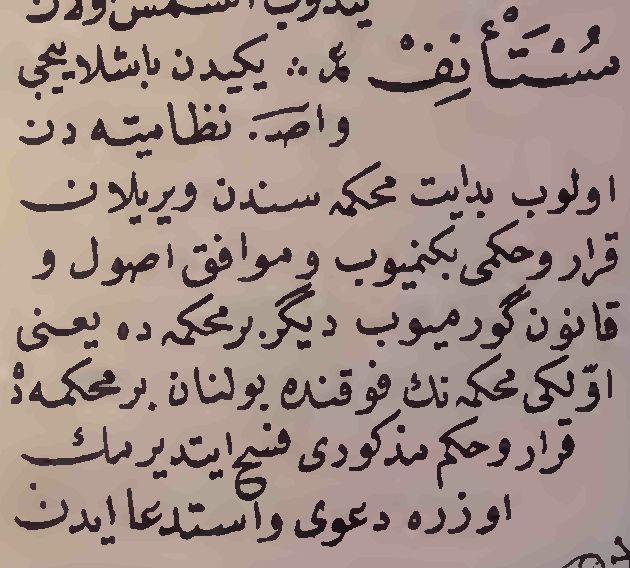 مُسْتَأْنِفْ ع ∴ يكيدن باشلاييجى
واصـ. نظاميته دن
اولوب بدايت محكمه سندن ويريلان
قرار وحكمى بكنميوب وموافق اصول و
قانون گورميوب ديگر برمحكمه ده يعنى
اوّلكى محكمه نك فوقنده بولنان بر محكمه دْ
قرار وحكم مذكورى فسخ ايتديرمك
اوزره دعوى واستدعا ايدن